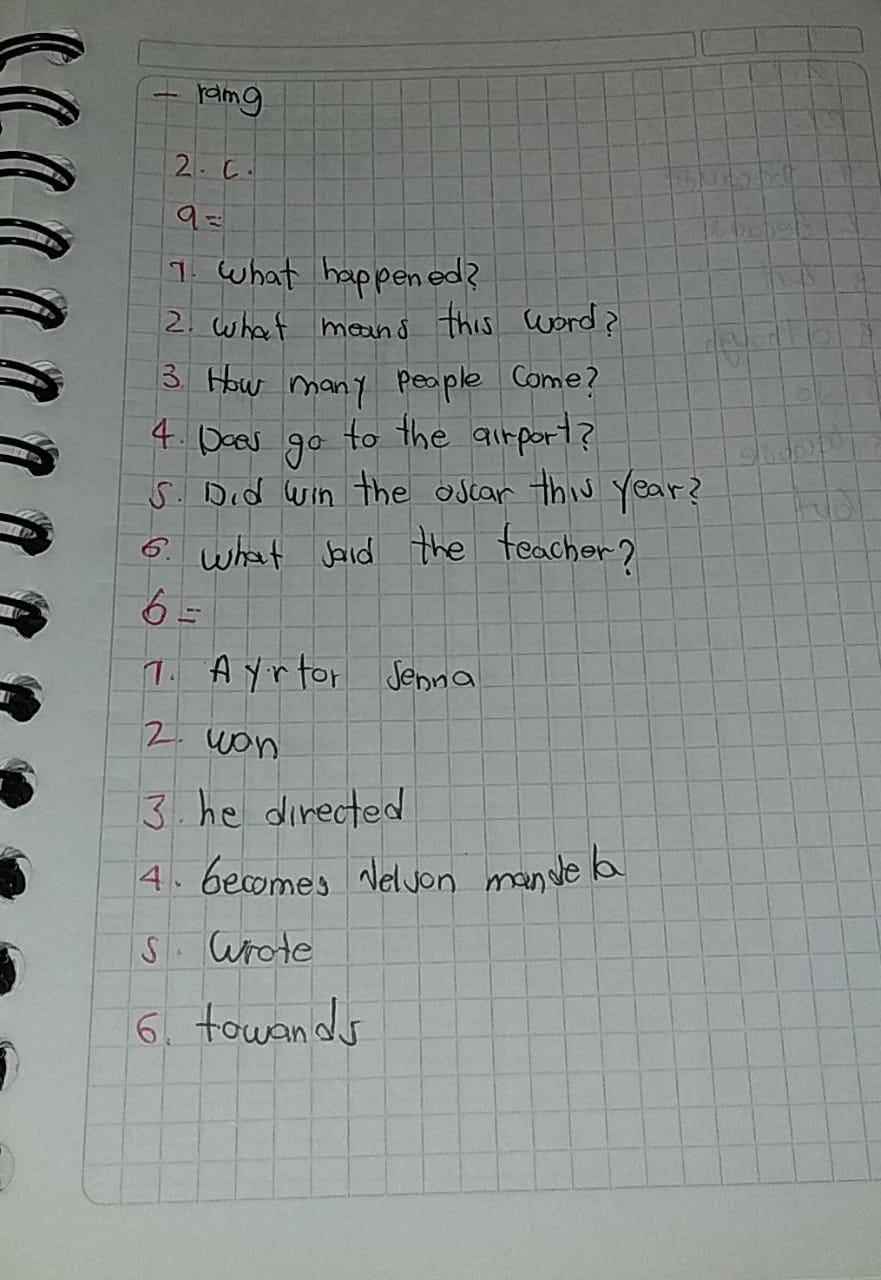 - rang
2. C.
a =
1. What happened?
2. What means this word?
3 How many people come?
4. Does go to the airport?
5. Did win the oscar this year?
6. What said the teacher?
6 =
1. Ayrtor Senna
2. won
3. he directed
4. becomes Nelson mandela
5. Wrote
6. towands